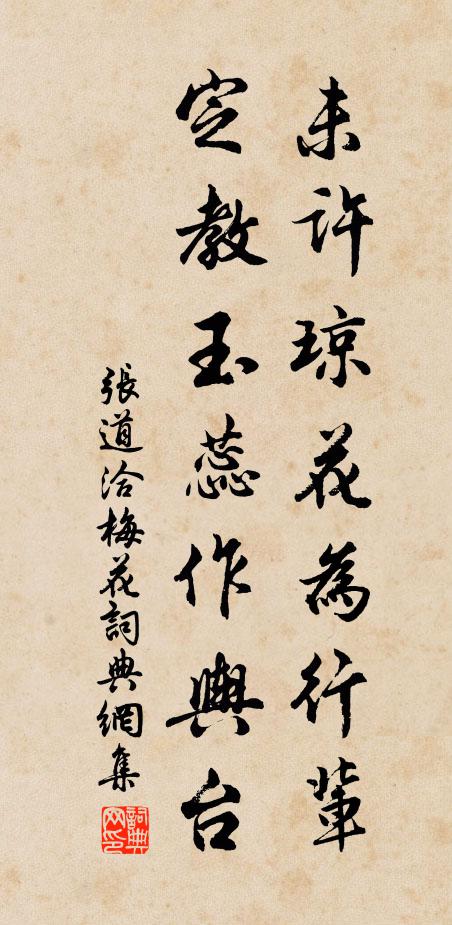 未許琼花為行輩
定教玉蕊作輿台
張道洽梅花詞典網集
詞典網印